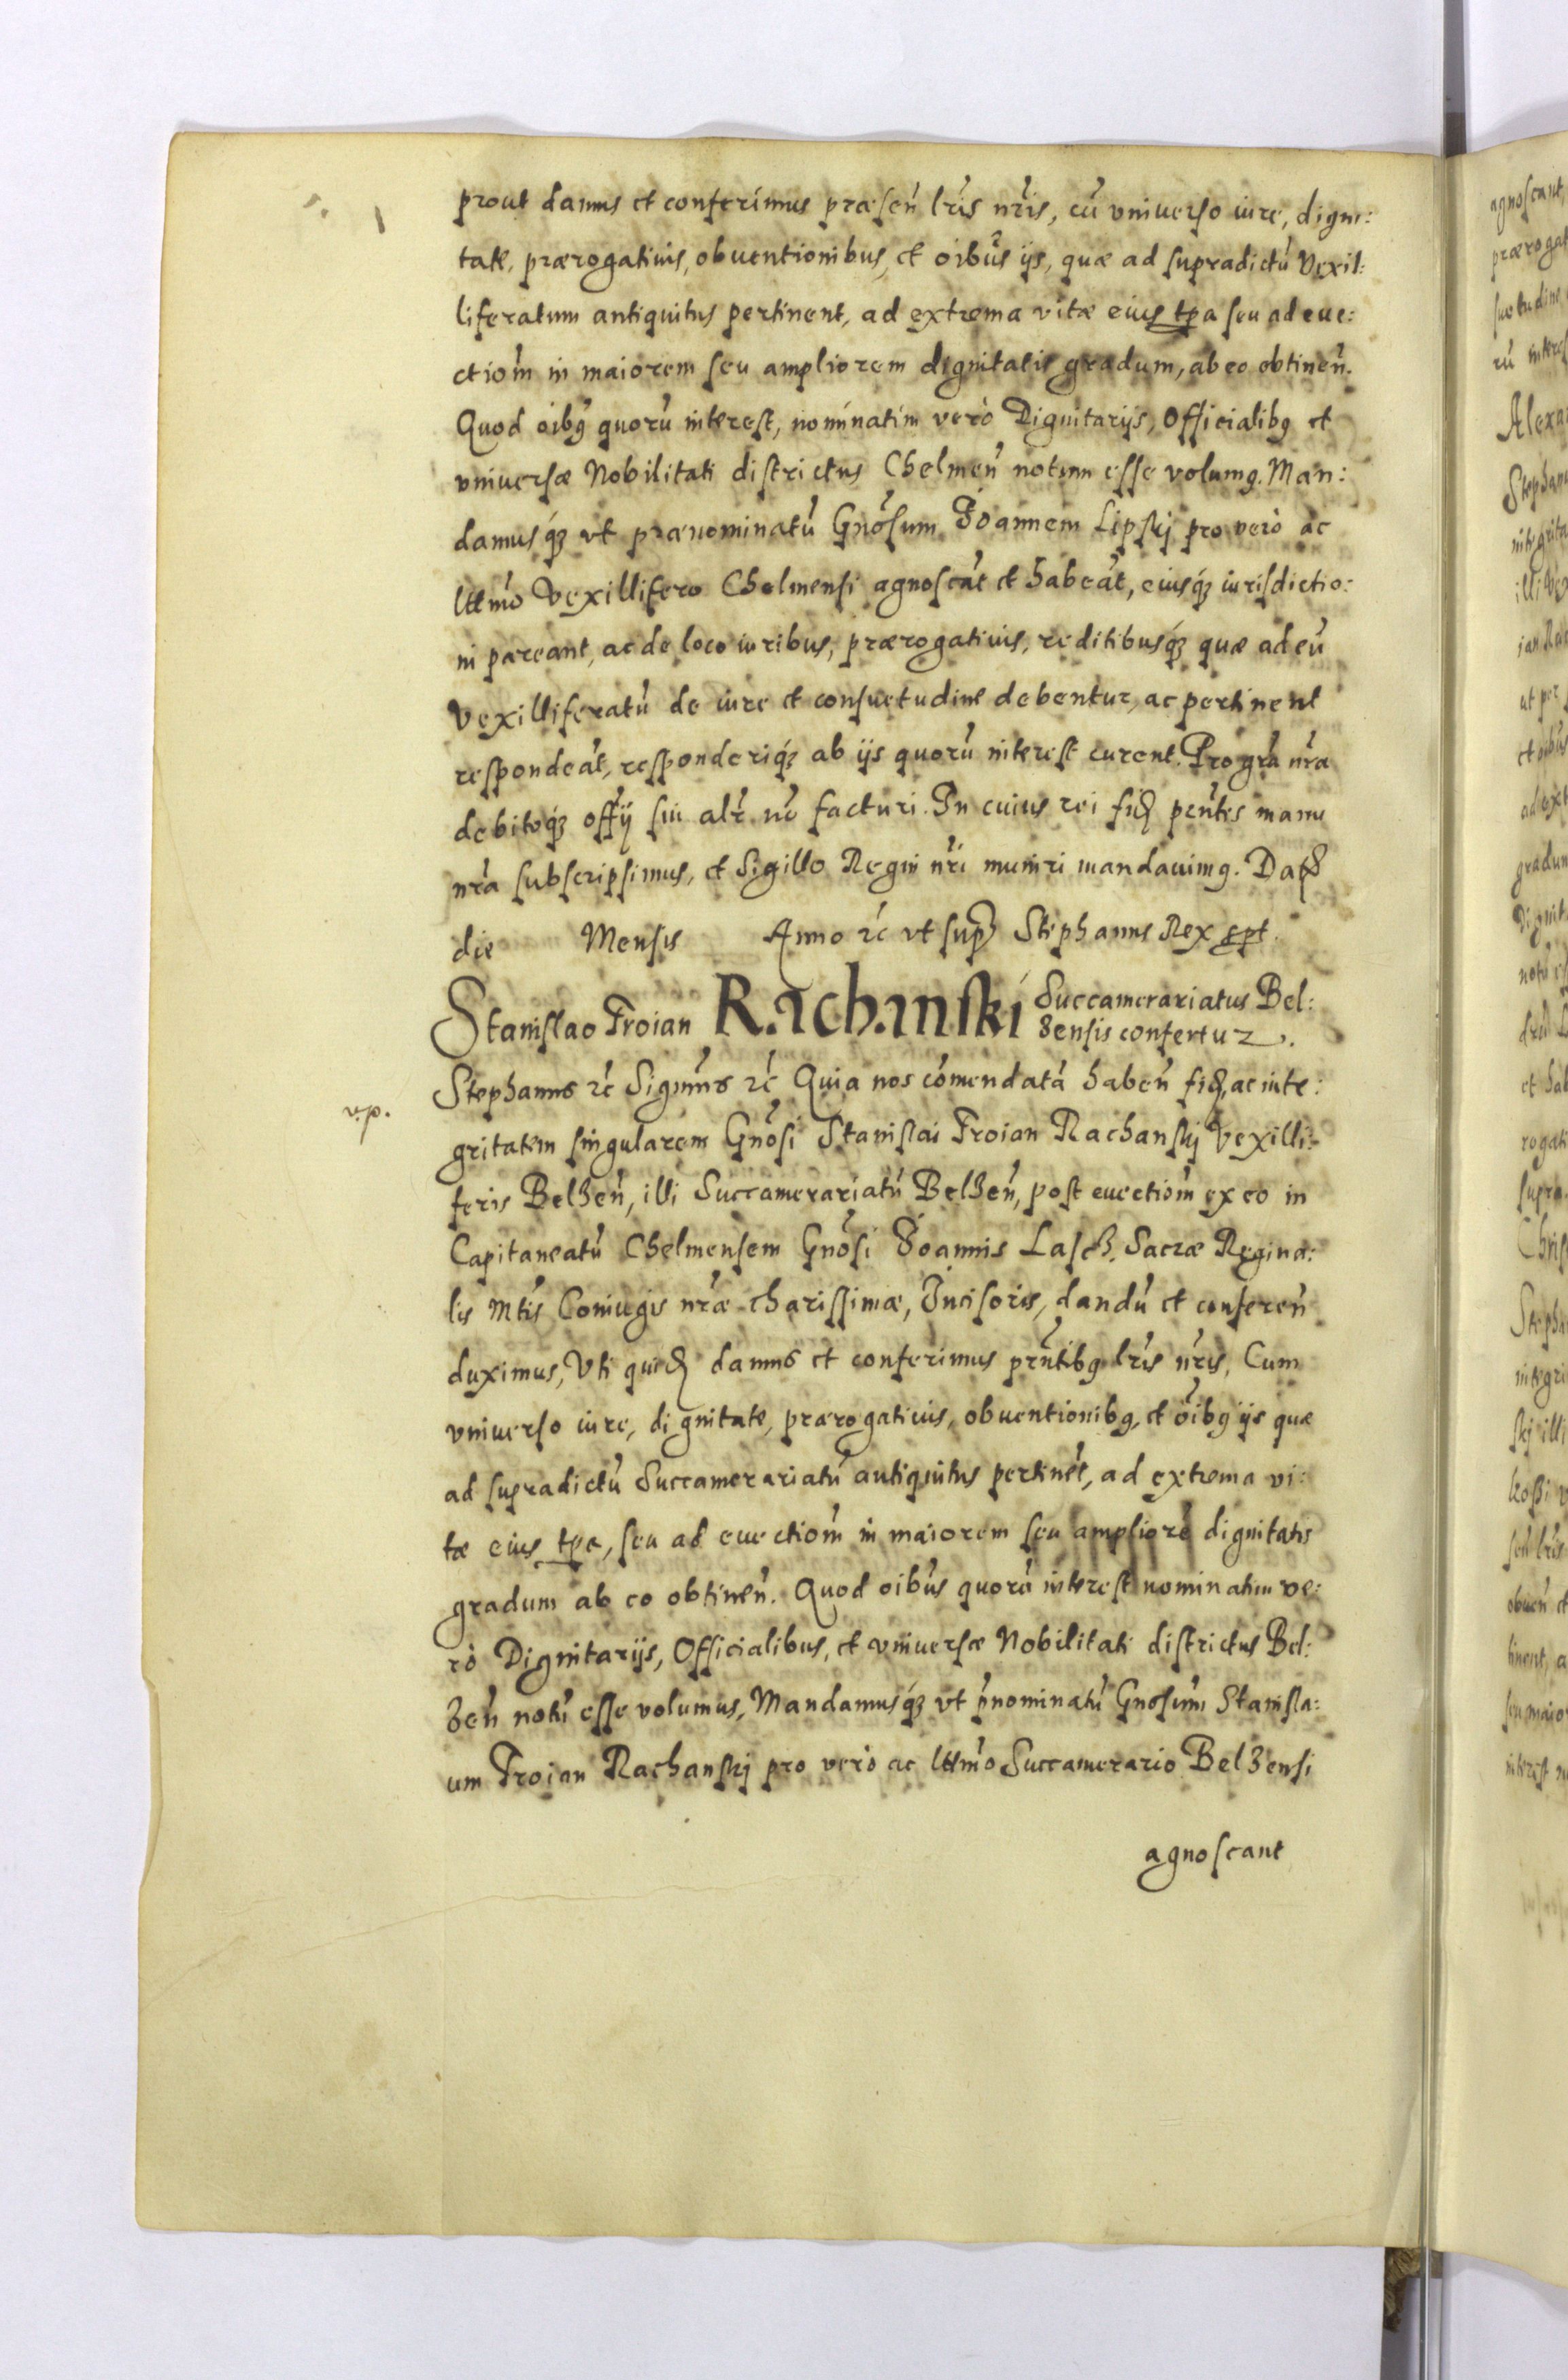 prout damus et conferimus præsen̄ lr̄is nr̄is, cū vniuerso iure, digni:
tate, prærogatiuis, obuentionibus, et oībus ijs, quæ ad supradictū Vexil:
liferatum antiquitus pertinent, ad extrema vitæ eius tp̄a seu ad eue:
ctiōm in maiorem seu ampliorem dignitatis gradum, ab eo obtinen̄.
Quod oībꝯ quorū interest, nominatim verò Dignitarijs, Officialibꝯ et
vniuersæ Nobilitati districtus Chelmen̄ notum esse volumꝯ. Man:
damusq́ꝫ vt prænominatū Gnōsum Joannem Lipskj pro vero ac
lttmō Vexillifero Chelmensi agnoscāt et habeāt, eiusq́ꝫ iurisdictio:
ni pareant, ac de loco iuribus, prærogatiuis, reditibusq́ꝫ quæ ad eū
Vexilliferatū de iure et consuetudine debentur, ac pertinent
respondeāt, responderiq́ꝫ ab ijs quorū interest curent. Pro gr̄a nr̄a
debitoq́ꝫ offij sui alr̄ nō facturi. In cuius rei fid̄ pn̄tes manu
nr̄a subscripsimus, et Sigillo Regni nr̄i muniri mandauimꝯ. Dat̄
die Mensis Anno ꝛc̄ vt sup̄ Stephanus Rex sp̄t.
Stanislao Troian Rachanski Succamerariatus Bel:
zensis confertur.
Stephanus ꝛc̄ Signmūs ꝛc̄ Quia nos cōmendatā haben̄ fid̄, ac inte:
v.p.
gritatem singularem Gnōsi Stanislai Troian Rachanskj Vexilli:
feris Belzen̄, illi Succamerariatū Belzen̄, post euectiōm ex eo in
Capitaneatū Chelmensem Gnōsi Joannis Lasch. Sacræ Regina:
lis Mtīs Coniugis nr̄æ charissimæ, Incisoris, dandū et conferen̄
duximus, Vti quid̄ damus et conferimus prn̄tibꝯ lr̄is nr̄is, Cum
vniuerso iure, dignitate, prærogatiuis, obuentionibꝯ, et oībꝯ ijs quæ
ad supradictū Succamerariatū antiquitus pertinēt, ad extrema vi:
tæ eius tp̄a, seu ad euectiōm in maiorem seu ampliorē dignitatis
gradum ab eo obtinen̄. Quod oībus quorū interest nominatim ve:
rò Dignitarijs, Officialibus, et vniuersæ Nobilitati districtus Bel:
zen̄ notū esse volumus, Mandamusq́ꝫ vt p̄nominatū Gnōsum Stanisla:
um Troian Rachanskj pro verò ac lttmō Succamerario Belzensi
agnoscant